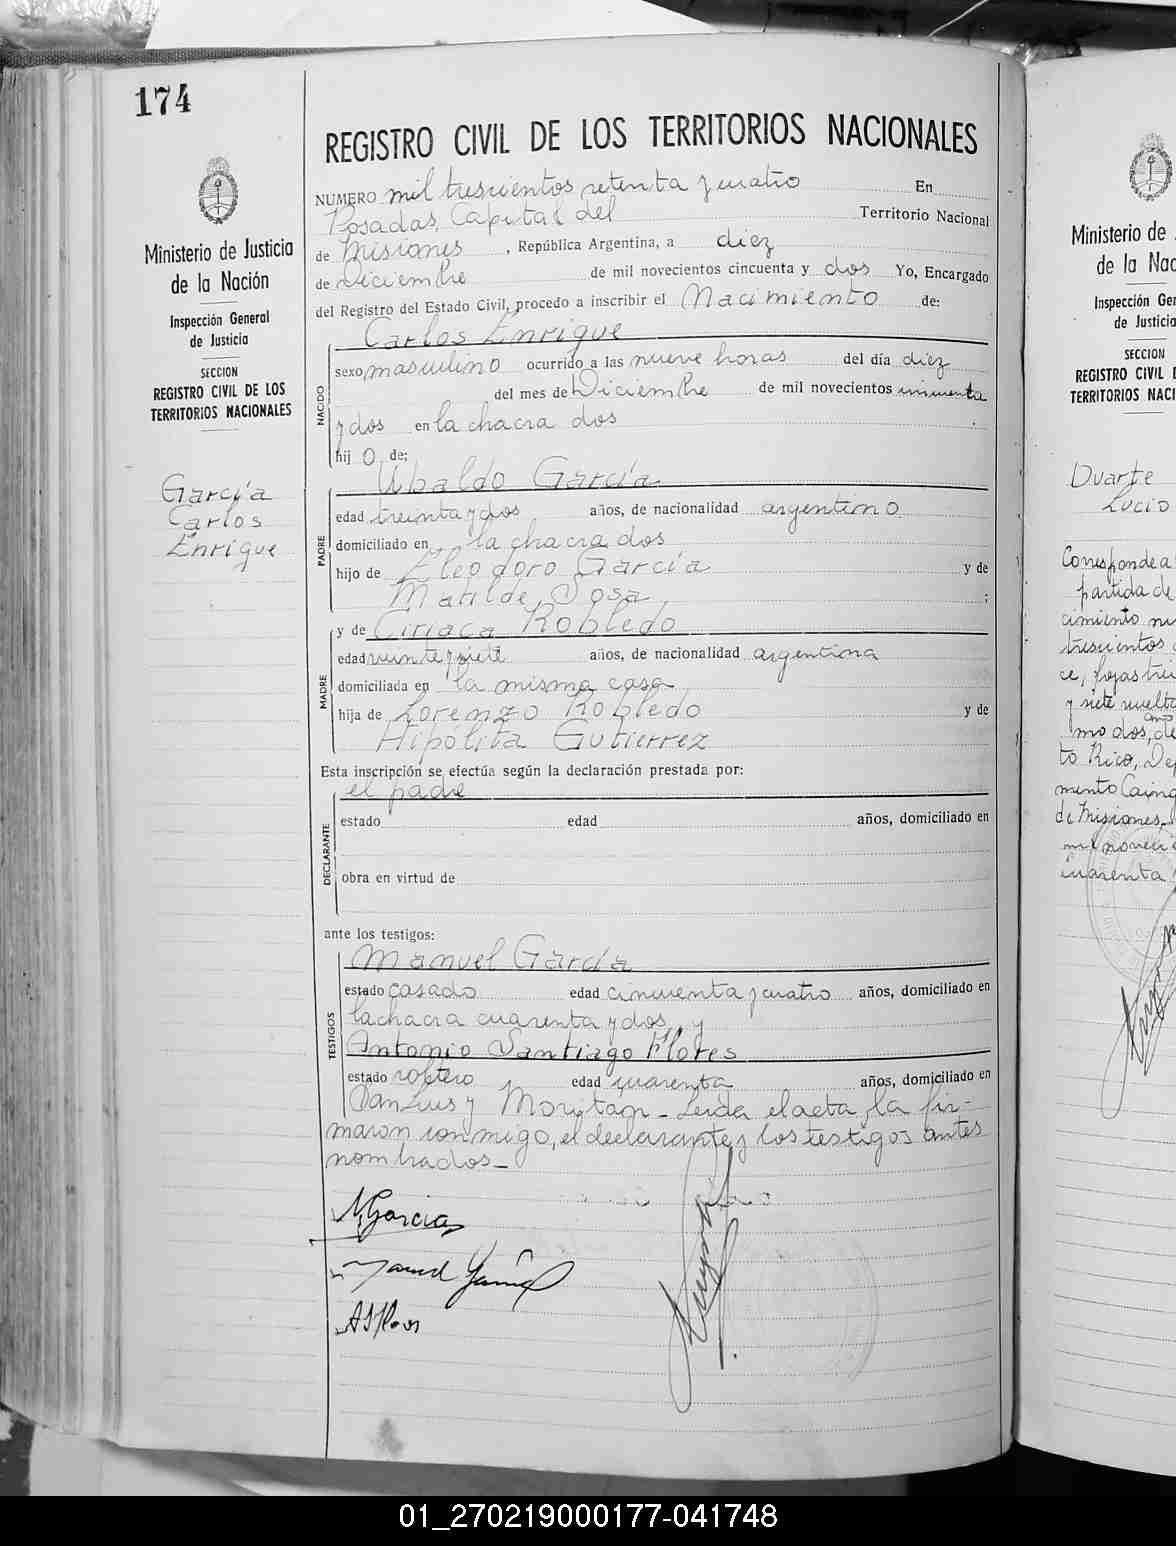 174
REGISTRO CIVIL DE LOS TERRITORIOS NACIONALES
Ministerio de Justicia
de la Nación
Inspección General
de Justicia
SECCION
REGISTRO CIVIL DE LOS
TERRITORIOS NACIONALES
García
Carlos
Enrique
NUMERO mil trescientos setenta y cuatro En
Posadas, Capital del Territorio Nacional
de Misiones, República Argentina, a diez
de Diciembre de mil novecientos cincuenta y dos Yo, Encargado
del Registro del Estado Civil, procedo a inscribir el Nacimiento de:
Carlos Enrique
NACIDO
sexo masculino ocurrido a las nueve horas del día diez
del mes de Diciembre de mil novecientos cincuenta
y dos en la chacra dos
hij o de:
Ubaldo García
PADRE
edad treinta y dos años, de nacionalidad argentino
domiciliado en la chacra dos
hijo de Eleodoro García y de
Matilde Sosa ;
y de Ciriaca Robledo
MADRE
edad veinte y siete años, de nacionalidad argentina
domiciliada en la misma casa
hija de Lorenzo Robledo y de
Hipólita Gutierrez
Esta inscripción se efectúa según la declaración prestada por:
el padre
DECLARANTE
estado edad años, domiciliado en
obra en virtud de
ante los testigos:
Manuel García
TESTIGOS
estado casado edad cincuenta y cuatro años, domiciliado en
la chacra cuarenta y dos, y
Antonio Santiago Flores
estado soltero edad cuarenta años, domiciliado en
San Luis y Moritan - Leida el acta, la fir-
maron conmigo, el declarante y los testigos antes
nombrados -
Garcia
Ministerio de
de la Nac
Inspección Ge
de Justicia
SECCION
REGISTRO CIVIL
TERRITORIOS NACI
Duarte
Lucio
Corresponde a
partida de
cimiento nu
trescientos
ce, fojas trei
y siete vuelta
mo dos,
to Rico, De
mento Caing
de Misiones,
mil noveci
cuarenta
01_270219000177-041748